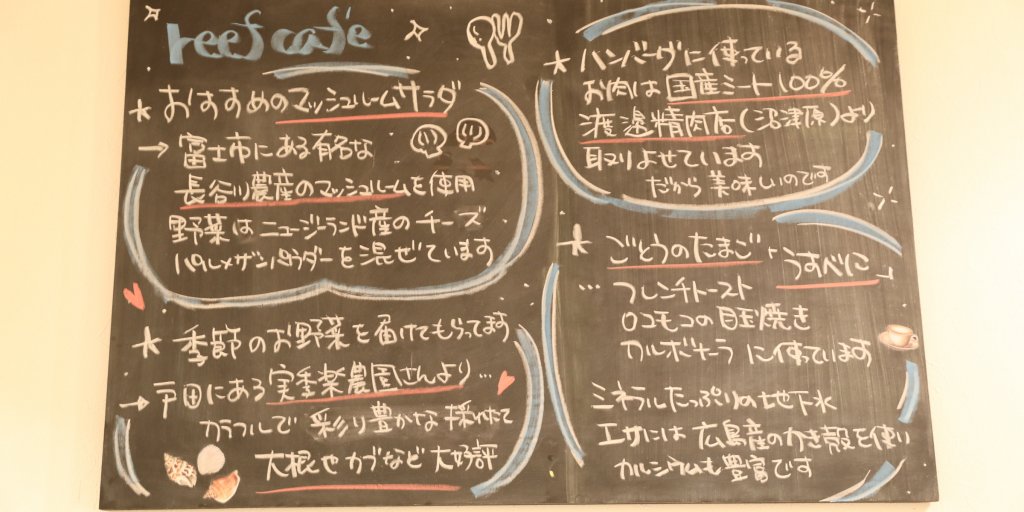 reef café
★ おすすめのマッシュルームサラダ
→ 富士市にある有名な
長谷川農産のマッシュルームを使用
野菜はニュージーランド産のチーズ
パルメザンパウダーを混ぜています
★ 季節のお野菜を届けてもらってます
→ 戸田にある実季楽農園さんより…
カラフルで 彩り豊かな 採れたて
大根やカブなど 大好評
★ ハンバーグに使っている
お肉は国産ミート100%
渡邉精肉店(沼津原)より
取りよせています
だから 美味しいのです
★ ごとうのたまご「うすべに」
… フレンチトースト
ロコモコの目玉焼き
カルボナーラ に使っています
ミネラルたっぷりの地下水
エサには 広島産のかき殻を使い
カルシウムも豊富です